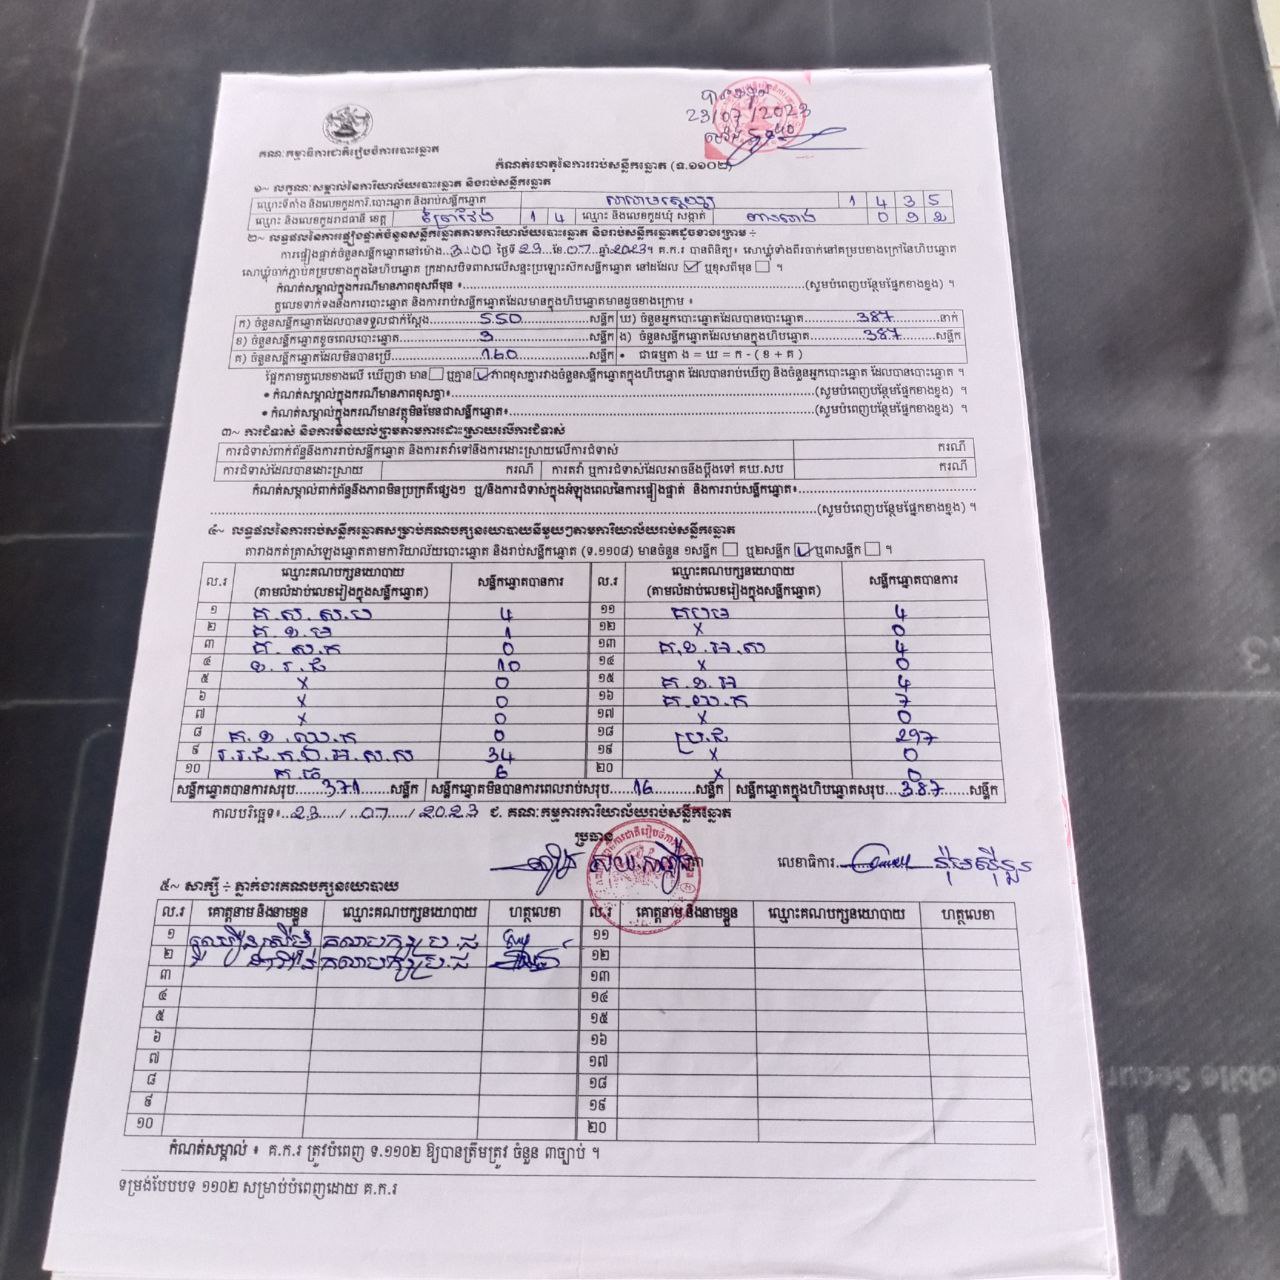 23/07/2023
គណៈកម្មាធិការជាតិរៀបចំការបោះឆ្នោត
កំណត់ហេតុនៃការរាប់សន្លឹកឆ្នោត (ទ.១១០២)
១~ លក្ខណៈសម្គាល់នៃការិយាល័យបោះឆ្នោត និងរាប់សន្លឹកឆ្នោត
ឈ្មោះទីតាំង និងលេខកូដការិ.បោះឆ្នោត និងរាប់សន្លឹកឆ្នោត 1 4 3 5
ឈ្មោះ និងលេខកូដរាជធានី ខេត្ត ព្រៃវែង 1 4 ឈ្មោះ និងលេខកូដឃុំ សង្កាត់ 0 9 2
២~ លទ្ធផលនៃការផ្ទៀងផ្ទាត់ចំនួនសន្លឹកឆ្នោតតាមការិយាល័យបោះឆ្នោត និងរាប់សន្លឹកឆ្នោតដូចខាងក្រោម ÷
ការផ្ទៀងផ្ទាត់ចំនួនសន្លឹកឆ្នោតនៅម៉ោង 3:00 ថ្ងៃទី 23 ខែ 07 ឆ្នាំ 2023។ គ.ក.រ បានពិនិត្យ៖ សោឃ្លុំទាំងពីរចាក់នៅគម្របខាងក្រៅនៃហិបឆ្នោត
សោឃ្លុំចាក់ភ្ជាប់គម្របខាងក្នុងនៃហិបឆ្នោត ក្រដាសបិទពាសលើសន្ទះប្រឡោះសិកសន្លឹកឆ្នោត នៅដដែល ☑ ឬខុសពីមុន ☐ ។
កំណត់សម្គាល់ក្នុងករណីមានភាពខុសពីមុន ៖ (សូមបំពេញបន្ថែមផ្នែកខាងខ្នង) ។
តួលេខទាក់ទងនឹងការបោះឆ្នោត និងការរាប់សន្លឹកឆ្នោតដែលមានក្នុងហិបឆ្នោតមានដូចខាងក្រោម ៖
ក) ចំនួនសន្លឹកឆ្នោតដែលបានទទួលជាក់ស្តែង 550 សន្លឹក ឃ) ចំនួនអ្នកបោះឆ្នោតដែលបានបោះឆ្នោត 387 នាក់
ខ) ចំនួនសន្លឹកឆ្នោតខូចពេលបោះឆ្នោត 3 សន្លឹក ង) ចំនួនសន្លឹកឆ្នោតដែលមានក្នុងហិបឆ្នោត 387 សន្លឹក
គ) ចំនួនសន្លឹកឆ្នោតដែលមិនបានប្រើ 160 សន្លឹក • ជាធម្មតា ង = ឃ = ក - ( ខ + គ )
ផ្អែកតាមតួលេខខាងលើ ឃើញថា មាន ☐ ឬគ្មាន ☑ ភាពខុសគ្នារវាងចំនួនសន្លឹកឆ្នោតក្នុងហិបឆ្នោត ដែលបានរាប់ឃើញ និងចំនួនអ្នកបោះឆ្នោត ដែលបានបោះឆ្នោត ។
• កំណត់សម្គាល់ក្នុងករណីមានភាពខុសគ្នា៖ (សូមបំពេញបន្ថែមផ្នែកខាងខ្នង) ។
• កំណត់សម្គាល់ក្នុងករណីមានវត្ថុមិនមែនជាសន្លឹកឆ្នោត៖ (សូមបំពេញបន្ថែមផ្នែកខាងខ្នង) ។
៣~ ការជំទាស់ និងការមិនយល់ព្រមតាមការដោះស្រាយលើការជំទាស់
ការជំទាស់ពាក់ព័ន្ធនឹងការរាប់សន្លឹកឆ្នោត និងការតវ៉ាទៅនឹងការដោះស្រាយលើការជំទាស់ ករណី
ការជំទាស់ដែលបានដោះស្រាយ ករណី ការតវ៉ា ឬការជំទាស់ដែលអាចនឹងប្តឹងទៅ គឃ.សប ករណី
កំណត់សម្គាល់ពាក់ព័ន្ធនឹងភាពមិនប្រក្រតីផ្សេងៗ ឬ/និងការជំទាស់ក្នុងអំឡុងពេលនៃការផ្ទៀងផ្ទាត់ និងការរាប់សន្លឹកឆ្នោត៖
(សូមបំពេញបន្ថែមផ្នែកខាងខ្នង) ។
៤~ លទ្ធផលនៃការរាប់សន្លឹកឆ្នោតសម្រាប់គណបក្សនយោបាយនីមួយៗតាមការិយាល័យរាប់សន្លឹកឆ្នោត
តារាងកត់ត្រាសំឡេងឆ្នោតតាមការិយាល័យបោះឆ្នោត និងរាប់សន្លឹកឆ្នោត (ទ.១១០៨) មានចំនួន ១សន្លឹក ☐ ឬ២សន្លឹក ☑ ឬ៣សន្លឹក ☐ ។
ល.រ ឈ្មោះគណបក្សនយោបាយ (តាមលំដាប់លេខរៀងក្នុងសន្លឹកឆ្នោត) សន្លឹកឆ្នោតបានការ ល.រ ឈ្មោះគណបក្សនយោបាយ (តាមលំដាប់លេខរៀងក្នុងសន្លឹកឆ្នោត) សន្លឹកឆ្នោតបានការ
១ គ.ស.ស.ប 4 ១១ គបម 4
២ គ.ខ.ម 1 ១២ x 0
៣ គ.ស.ក 0 ១៣ គ.ខ.អ.ស 4
៤ ខ.រ.ជ 10 ១៤ x 0
៥ x 0 ១៥ គ.ខ.អ 4
៦ x 0 ១៦ គ.យ.ក 7
៧ x 0 ១៧ x 0
៨ គ.ខ.ឈ.ក 0 ១៨ ប្រ.ជ 297
៩ 34 ១៩ x 0
១០ ក.ធ 6 ២០ x 0
សន្លឹកឆ្នោតបានការសរុប 371 សន្លឹក សន្លឹកឆ្នោតមិនបានការពេលរាប់សរុប 16 សន្លឹក សន្លឹកឆ្នោតក្នុងហិបឆ្នោតសរុប 387 សន្លឹក
កាលបរិច្ឆេទ៖ 23/07/2023 ជ. គណៈកម្មការការិយាល័យរាប់សន្លឹកឆ្នោត
ប្រធាន
លេខាធិការ
៥~ សាក្សី ÷ ភ្នាក់ងារគណបក្សនយោបាយ
ល.រ គោត្តនាម និងនាមខ្លួន ឈ្មោះគណបក្សនយោបាយ ហត្ថលេខា ល.រ គោត្តនាម និងនាមខ្លួន ឈ្មោះគណបក្សនយោបាយ ហត្ថលេខា
១ គណបក្សប្រ.ជ ១១
២ គណបក្សប្រ.ជ ១២
៣ ១៣
៤ ១៤
៥ ១៥
៦ ១៦
៧ ១៧
៨ ១៨
៩ ១៩
១០ ២០
កំណត់សម្គាល់ ៖ គ.ក.រ ត្រូវបំពេញ ទ.១១០២ ឱ្យបានត្រឹមត្រូវ ចំនួន ៣ច្បាប់ ។
ទម្រង់បែបបទ ១១០២ សម្រាប់បំពេញដោយ គ.ក.រ